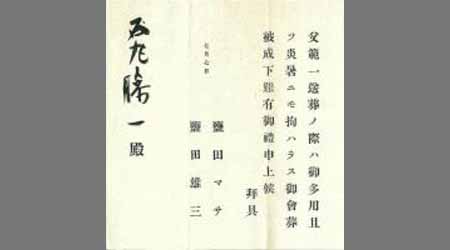 父範一送葬ノ際ハ御多用且
ツ炎暑ニモ拘ハラス御會葬
被成下難有御禮申上候
拜具
七月七日
鹽田マサ
鹽田雄三
一殿